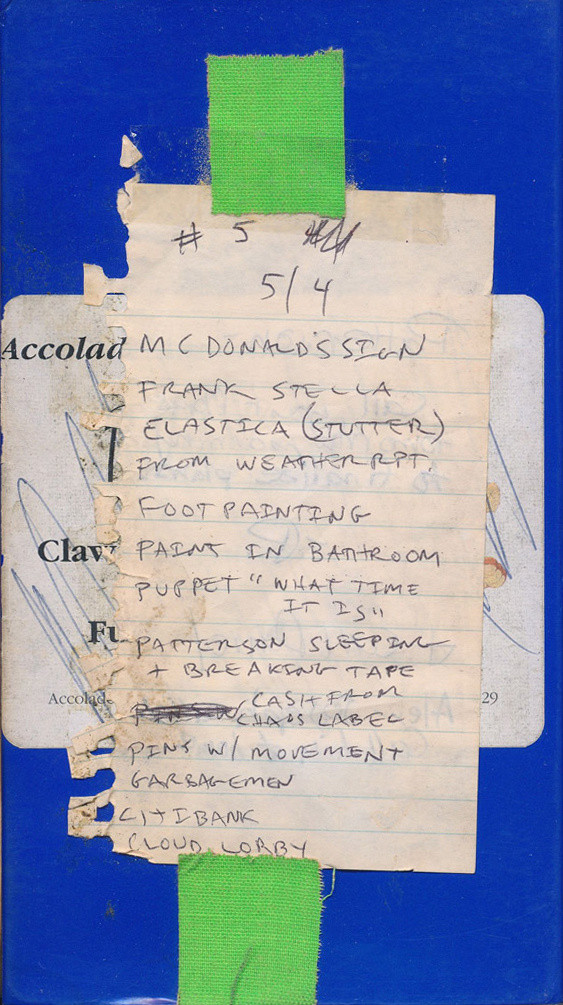 # 5
5/4
Accolad
MCDONALD'S SIGN
FRANK STELLA
ELASTICA (STUTTER)
FROM WEATHER RPT.
FOOT PAINTING
Claw
PAINT IN BATHROOM
PUPPET "WHAT TIME
IT IS"
Fu
PATTERSON SLEEPING
+ BREAKING TAPE
Accolade 29
CASH FROM
CHAOS LABEL
PINS W/ MOVEMENT
GARBAGEMEN
CITIBANK
CLOUD LOBBY